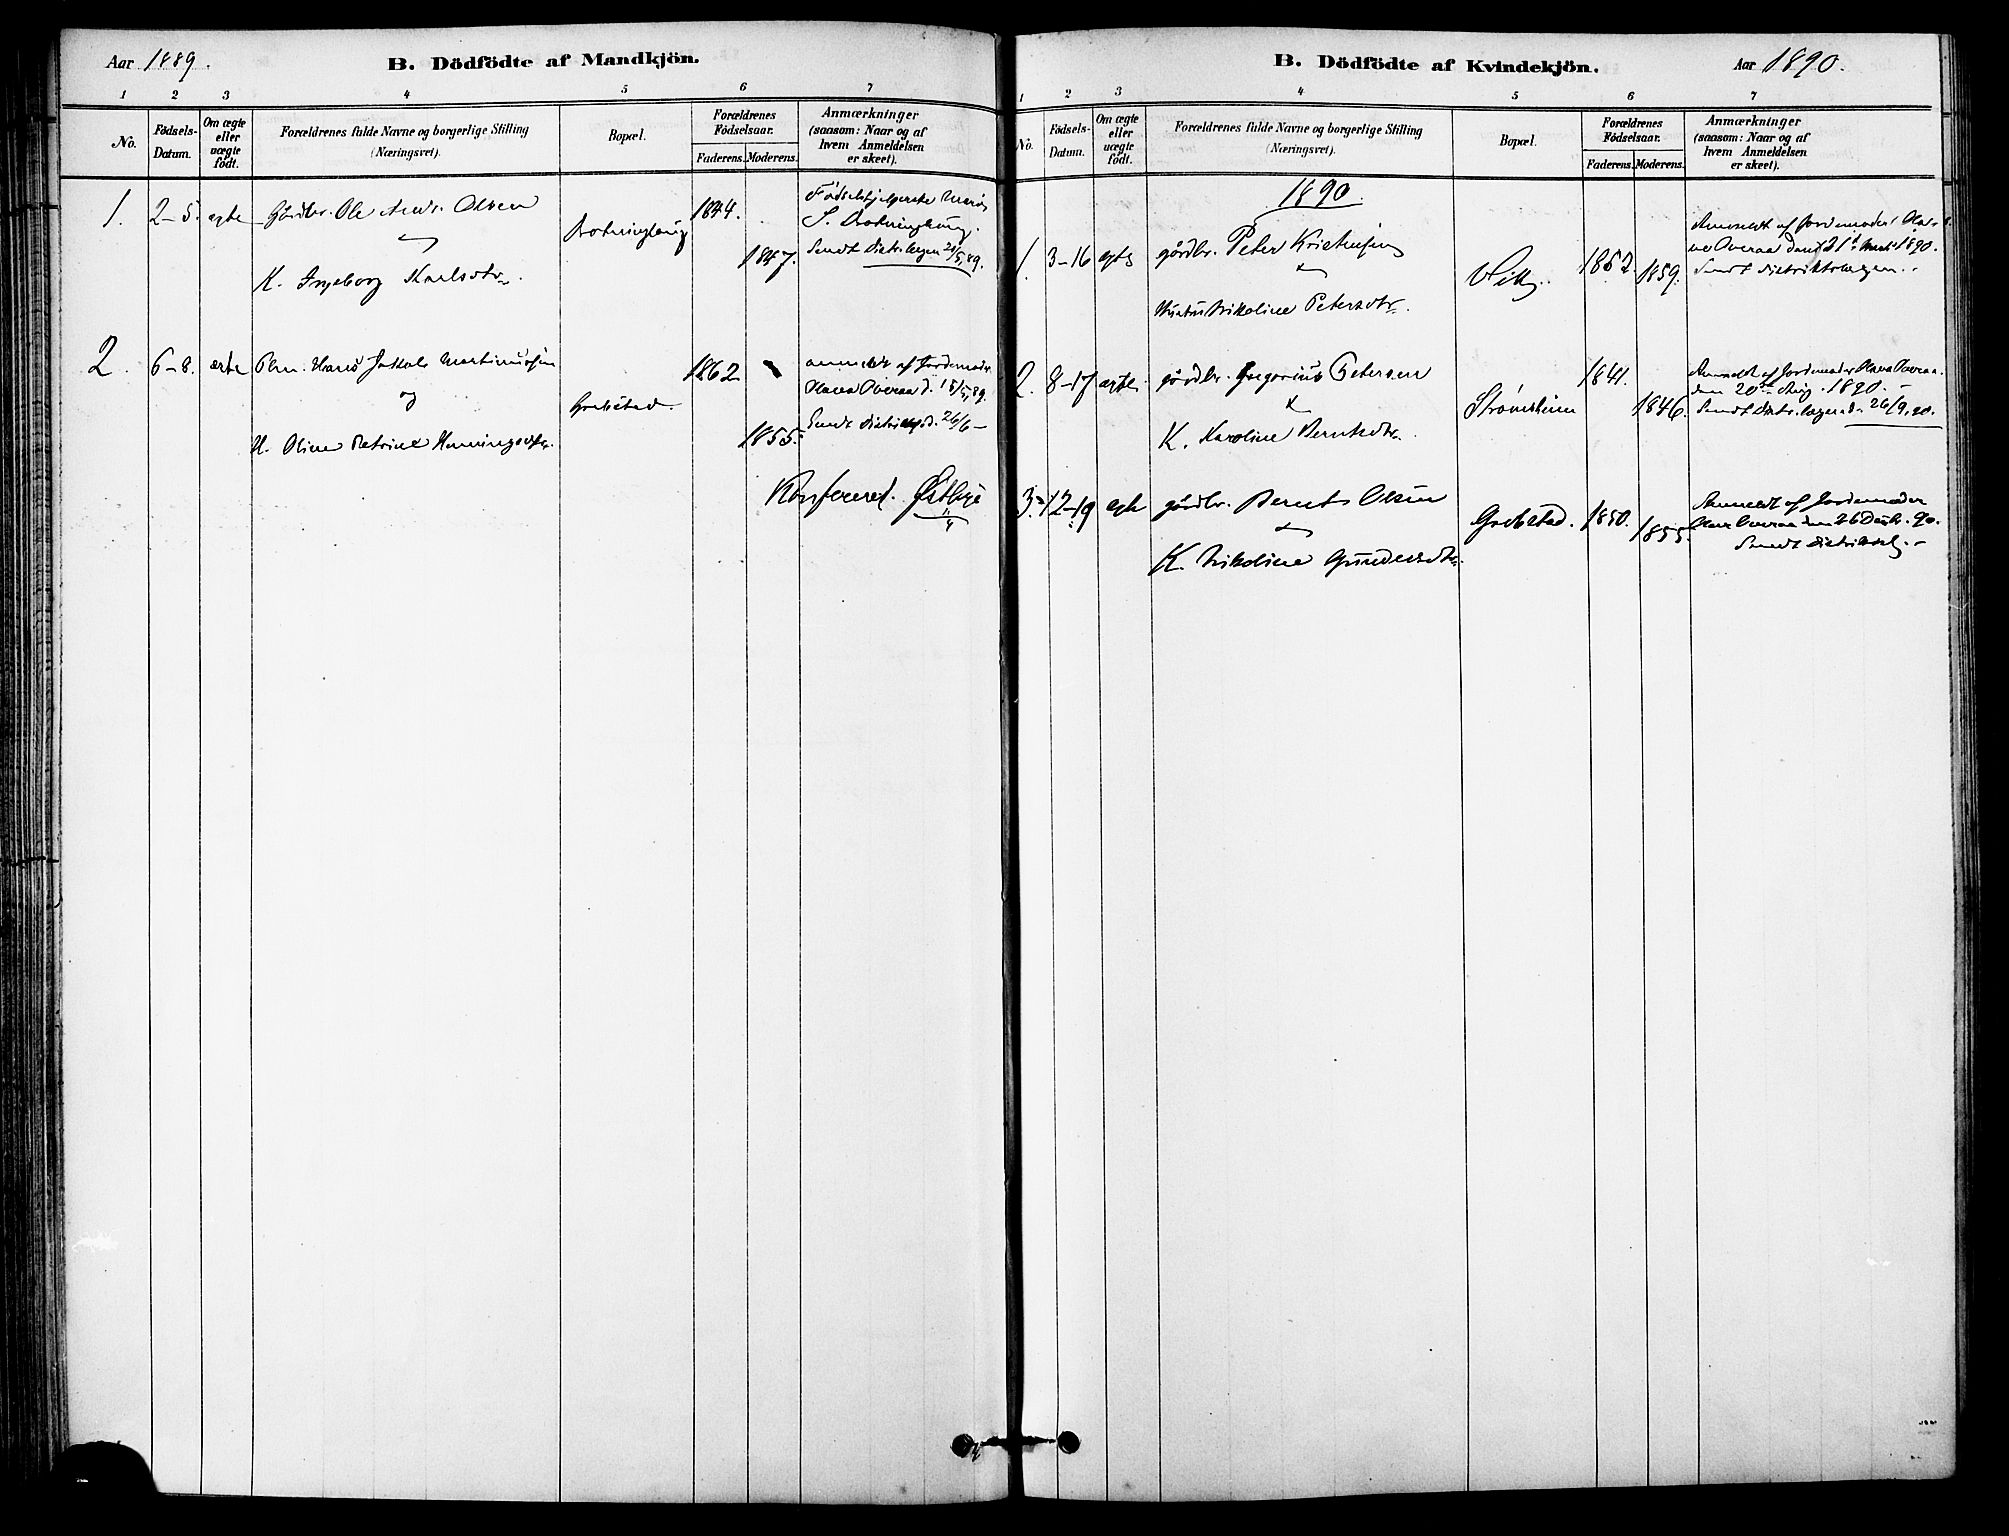 Aar 1889.
B. Dödfödte af Mandkjön.
1 2 3 4 5 6 7
No.
Födsels-
Datum.
Om ægte
eller
uægte
födt.
Forældrenes fulde Navne og borgerlige Stilling
(Næringsvei).
Bopæl.
Forældrenes
Födselsaar.
Faderens. Moderens.
Anmærkninger
(saasom: Naar og af
hvem Anmeldelsen
er skeet).
1. 2-5. egte Gårdbr. Ole Olsen
K. Ingeborg Karlsdtr.
1844.
1847.
S.
Sendt 21/5 89.
2. 6-8. ægte Hans Jakob Martinussen
og
H. Oline Petrine Henningsdtr.
Grebstad.
1862
1855.
anmeldt af Jordemoder
Olava Overaa d. 18/5 89.
Sendt 26/6 -
Konfereret. Østbye
B. Dödfödte af Kvindekjön.
Aar 1890.
1 2 3 4 5 6 7
No.
Födsels-
Datum.
Om ægte
eller
uægte
födt.
Forældrenes fulde Navne og borgerlige Stilling
(Næringsvei).
Bopæl.
Forældrenes
Födselsaar.
Faderens. Moderens.
Anmærkninger
(saasom: Naar og af
hvem Anmeldelsen
er skeet).
1890.
1. 3-16 egte gårdbr. Peter
Nikoline Petersdtr.
Vik.
1852. 1859.
Anmeldt af Jordemoder Ola-
va Overaa den 21de Marts 1890.
Sendt Distriktslægen. -
2. 8-17 ægte. gårdbr. Gregorius Petersen
&
K. Karoline Berntsdtr.
Strømsheim
1841.
1846.
Anmeldt af Jordemoder Olava Overaa
den 20de Aug. 1890. -
Sendt Distr.lægen d. 26/9 90.
3. 12-19 egte gårdbr. Bernt Olsen
K. Nikoline Gundersdtr.
Grebstad. 1850.
1855.
Anmeldt af Jordemoder
Overaa den 26 Decbr. 90.
Sendt Distriktsl. -